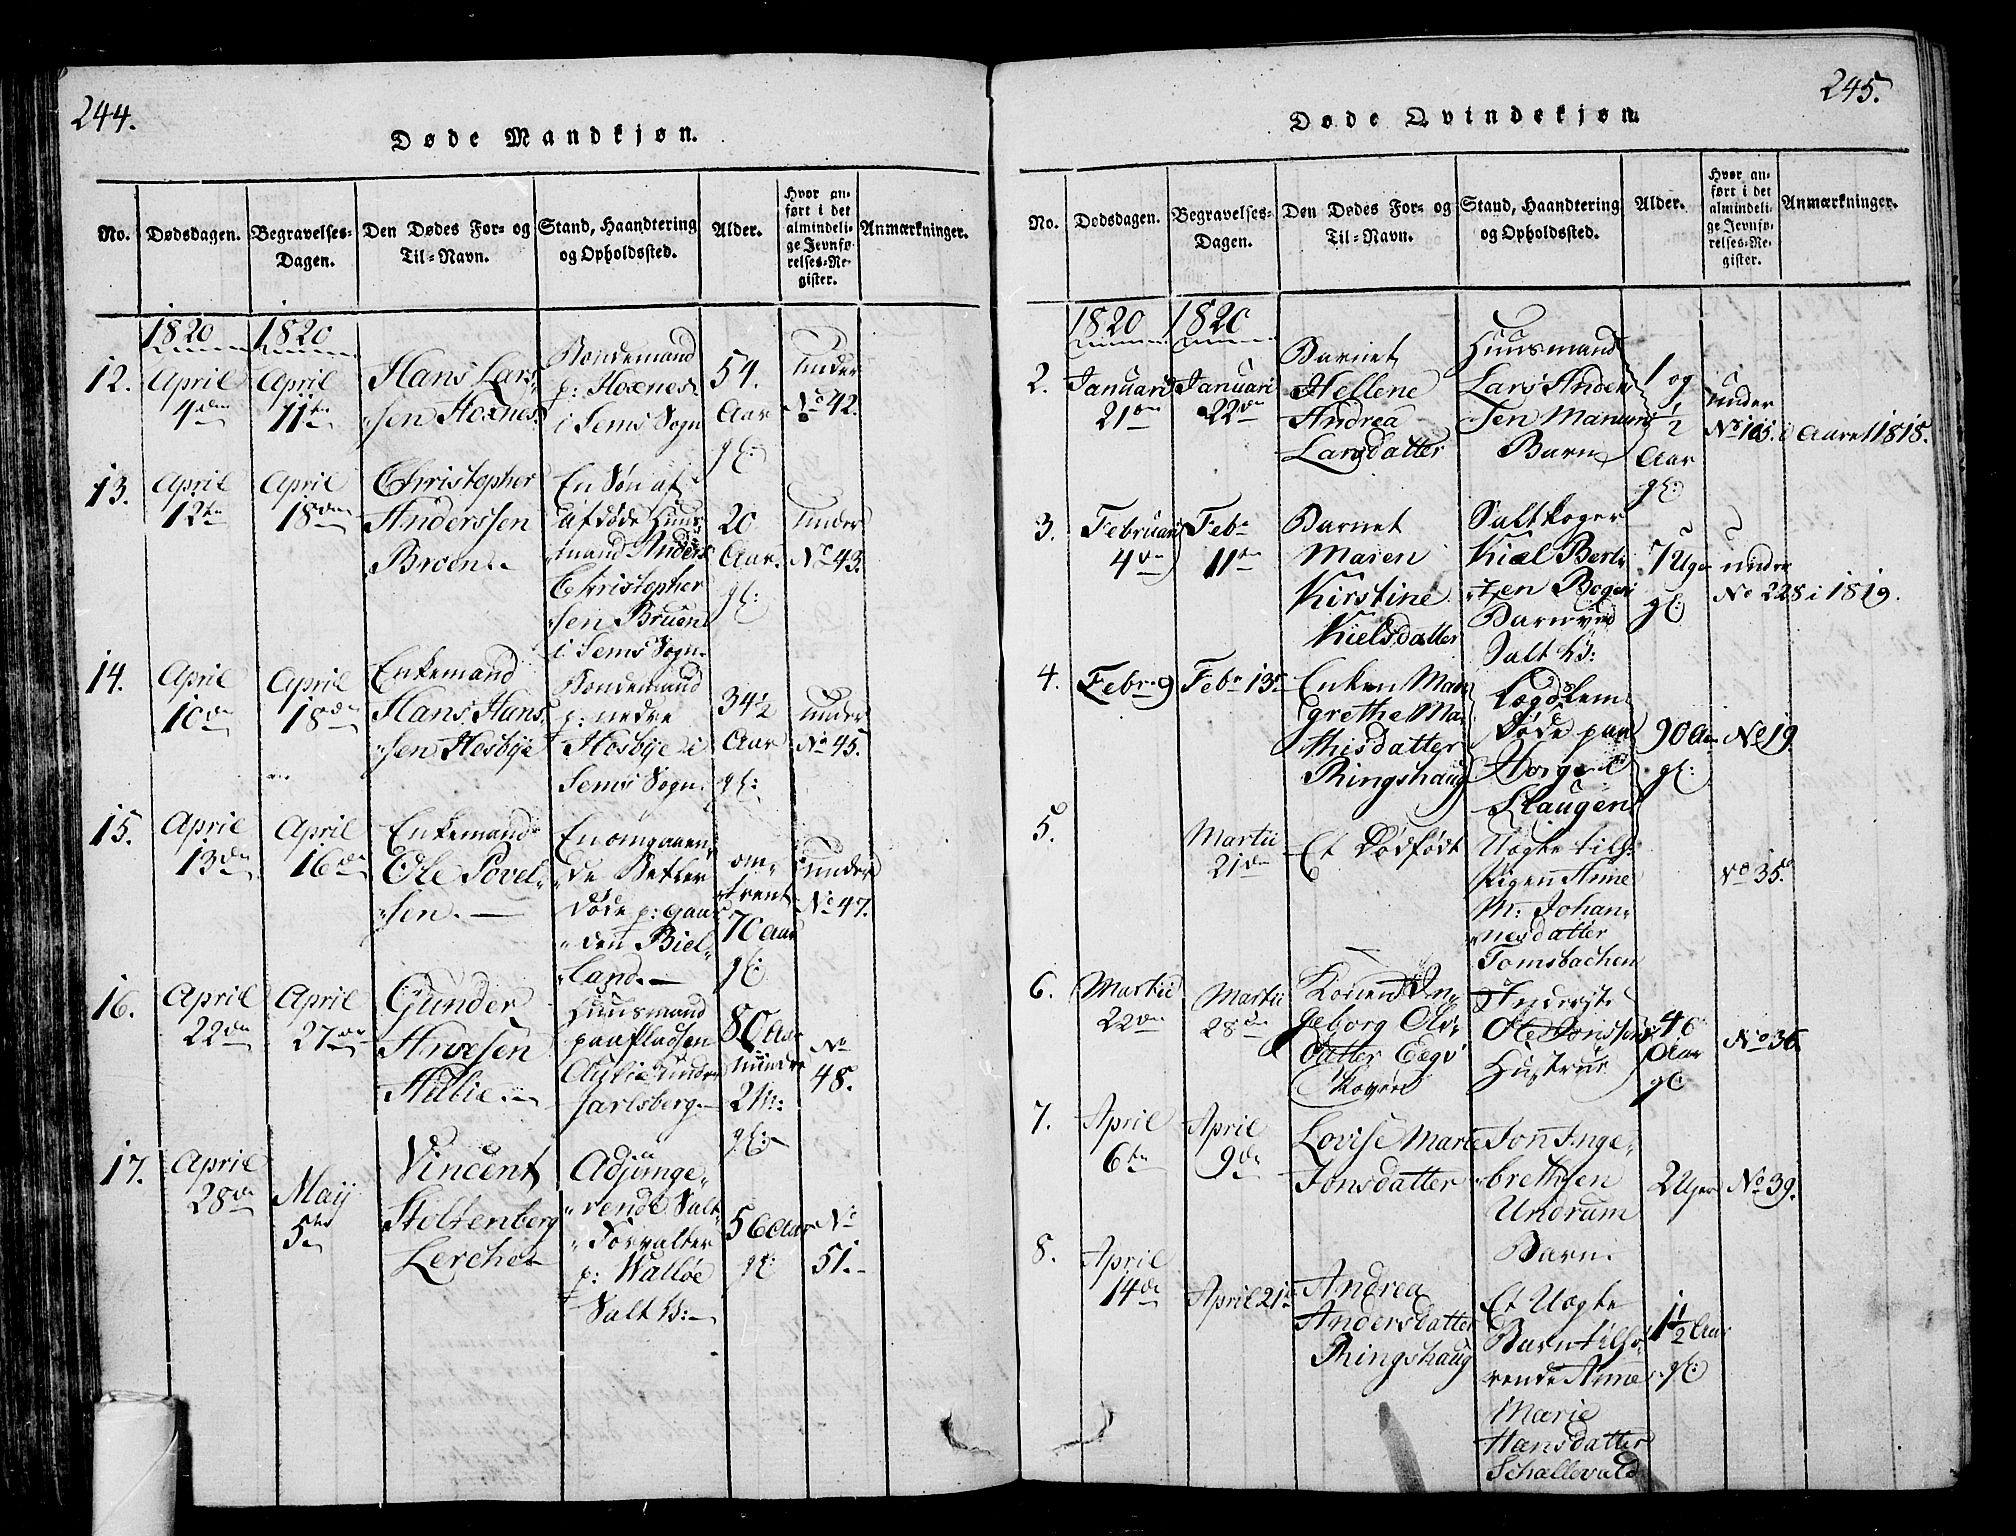 244.
Døde Mandkjøn.
No.
Dødsdagen.
Begravelses-
Dagen.
Den Dødes For- og
Til-Navn.
Stand, Haandtering
og Opholdssted.
Alder.
Hvor an-
ført i det
almindeli-
ge Jevnfø-
relses-Re-
gister.
Anmærkninger.
1820
1820
12.
April
4de
April
11te
Hans Lars-
sen Hoxnes
Bondemand
p: Hoxnes
i Sems Sogn
54.
Aar
gl:
under
No 42.
13.
April
12te
April
18de
Christopher
Anderssen
Bruen
En Søn af
afdøde Huus-
mand Anders
Christopher
sen Bruen
i Sems Sogn
20
Aar
gl:
under
No 43.
14.
April
10de
April
18de
Enkemand
Hans Hans-
sen Hosbye
Bondemand
p: nedre
Hosbye i
Sems Sogn
34 1/2
Aar
gl:
under
No 45.
15.
April
13de
April
16de
Enkemand
Ole Povel-
sen
En omgaaen-
de Betler
døde p: gaar-
den Biel-
land
om-
trent
70 Aar
gl:
under
No 47.
16.
April
22de
April
27de
Gunder
Huusmand
paa Pladsen
under
Jarlsberg
80 Aar
mindre
2 M:
gl:
No
48.
17.
April
28de
May
5te
Vincent
Stoltenberg
Lerche
Adjunge-
rende Salt-
Forvalter
p: Walløe
Salt W:
56 Aar
gl:
No
51.
245.
Døde Qvindekjøn.
No.
Dødsdagen.
Begravelses-
Dagen.
Den Dødes For- og
Til-Navn.
Stand, Haandtering
og Opholdssted.
Alder.
Hvor an-
ført i det
almindeli-
ge Jevnfø-
relses-Re-
gister.
Anmærkninger.
1820
1820
2.
Januari
21de
Januari
22de
Barnet
Hellene
Andrea
Larsdatter
Huusmand
Lars Ander
sen
Barn
1 og
1/2
Aar
gl:
under
No 105. i Aaret 1818.
3.
Februari
4de
Feb
11te
Barnet
Maren
Kirstine
Kielsdatter
Saltkoger
Kiel Bert-
Barn ved
Salt W:
7 Uger
gl:
under
No 228 i 1819.
4.
Febr 9
Febr 13
Enken Mar
grethe Ma-
thisdatter
Ringshaug
Lægdslem
døde paa
90 Aar
gl:
No 19
5.
Martii
21de
Et Dødfødt
Uægte tilh:
Pigen Anne
M: Johan-
nesdatter
Tomsbachen
No 35.
6.
Martii
22de
Martii
28de
Konen In-
geborg Ols-
datter
Ole
Hustrue
46
Aar
gl:
No 36.
7.
April
6te
April
9de
Lovise Marie
Jonsdatter
Jon Inge-
brethsen
Undrum
Barn
2 Uger
No 39.
8.
April
14de
April 21de
Andrea
Andersdatter
Ringshaug
Et Uægte
Barn tilhø-
rende Anne
Marie
Hansdatter
Schallevald
1 1/2 Aar
gl: